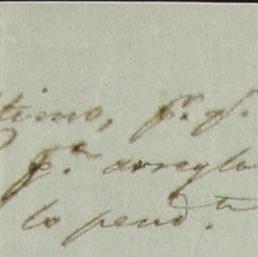 timo, p.ª q.
p.ª arregla
lo pend.te